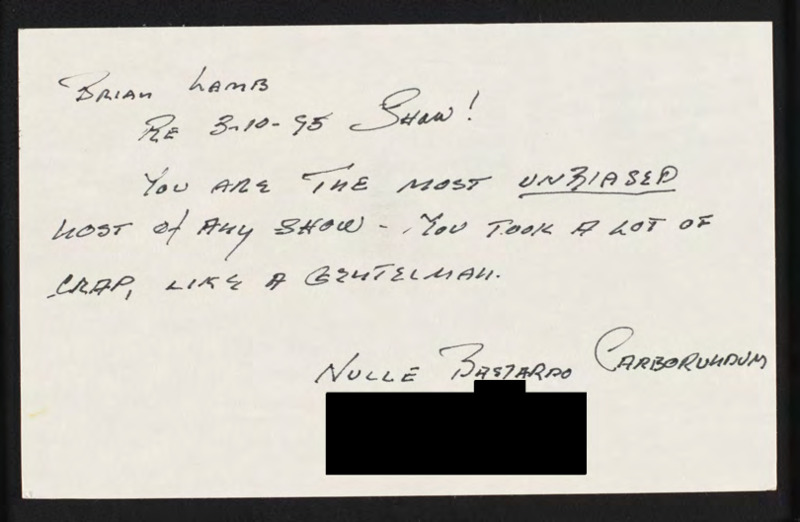 BRIAN LAMB
RE 3-10-95 SHOW!
YOU ARE THE MOST UNBIASED
HOST of ANY SHOW - YOU TOOK A LOT OF
CRAP, LIKE A GENTELMAN.
NULLE BASTARDO CARBORUNDUM